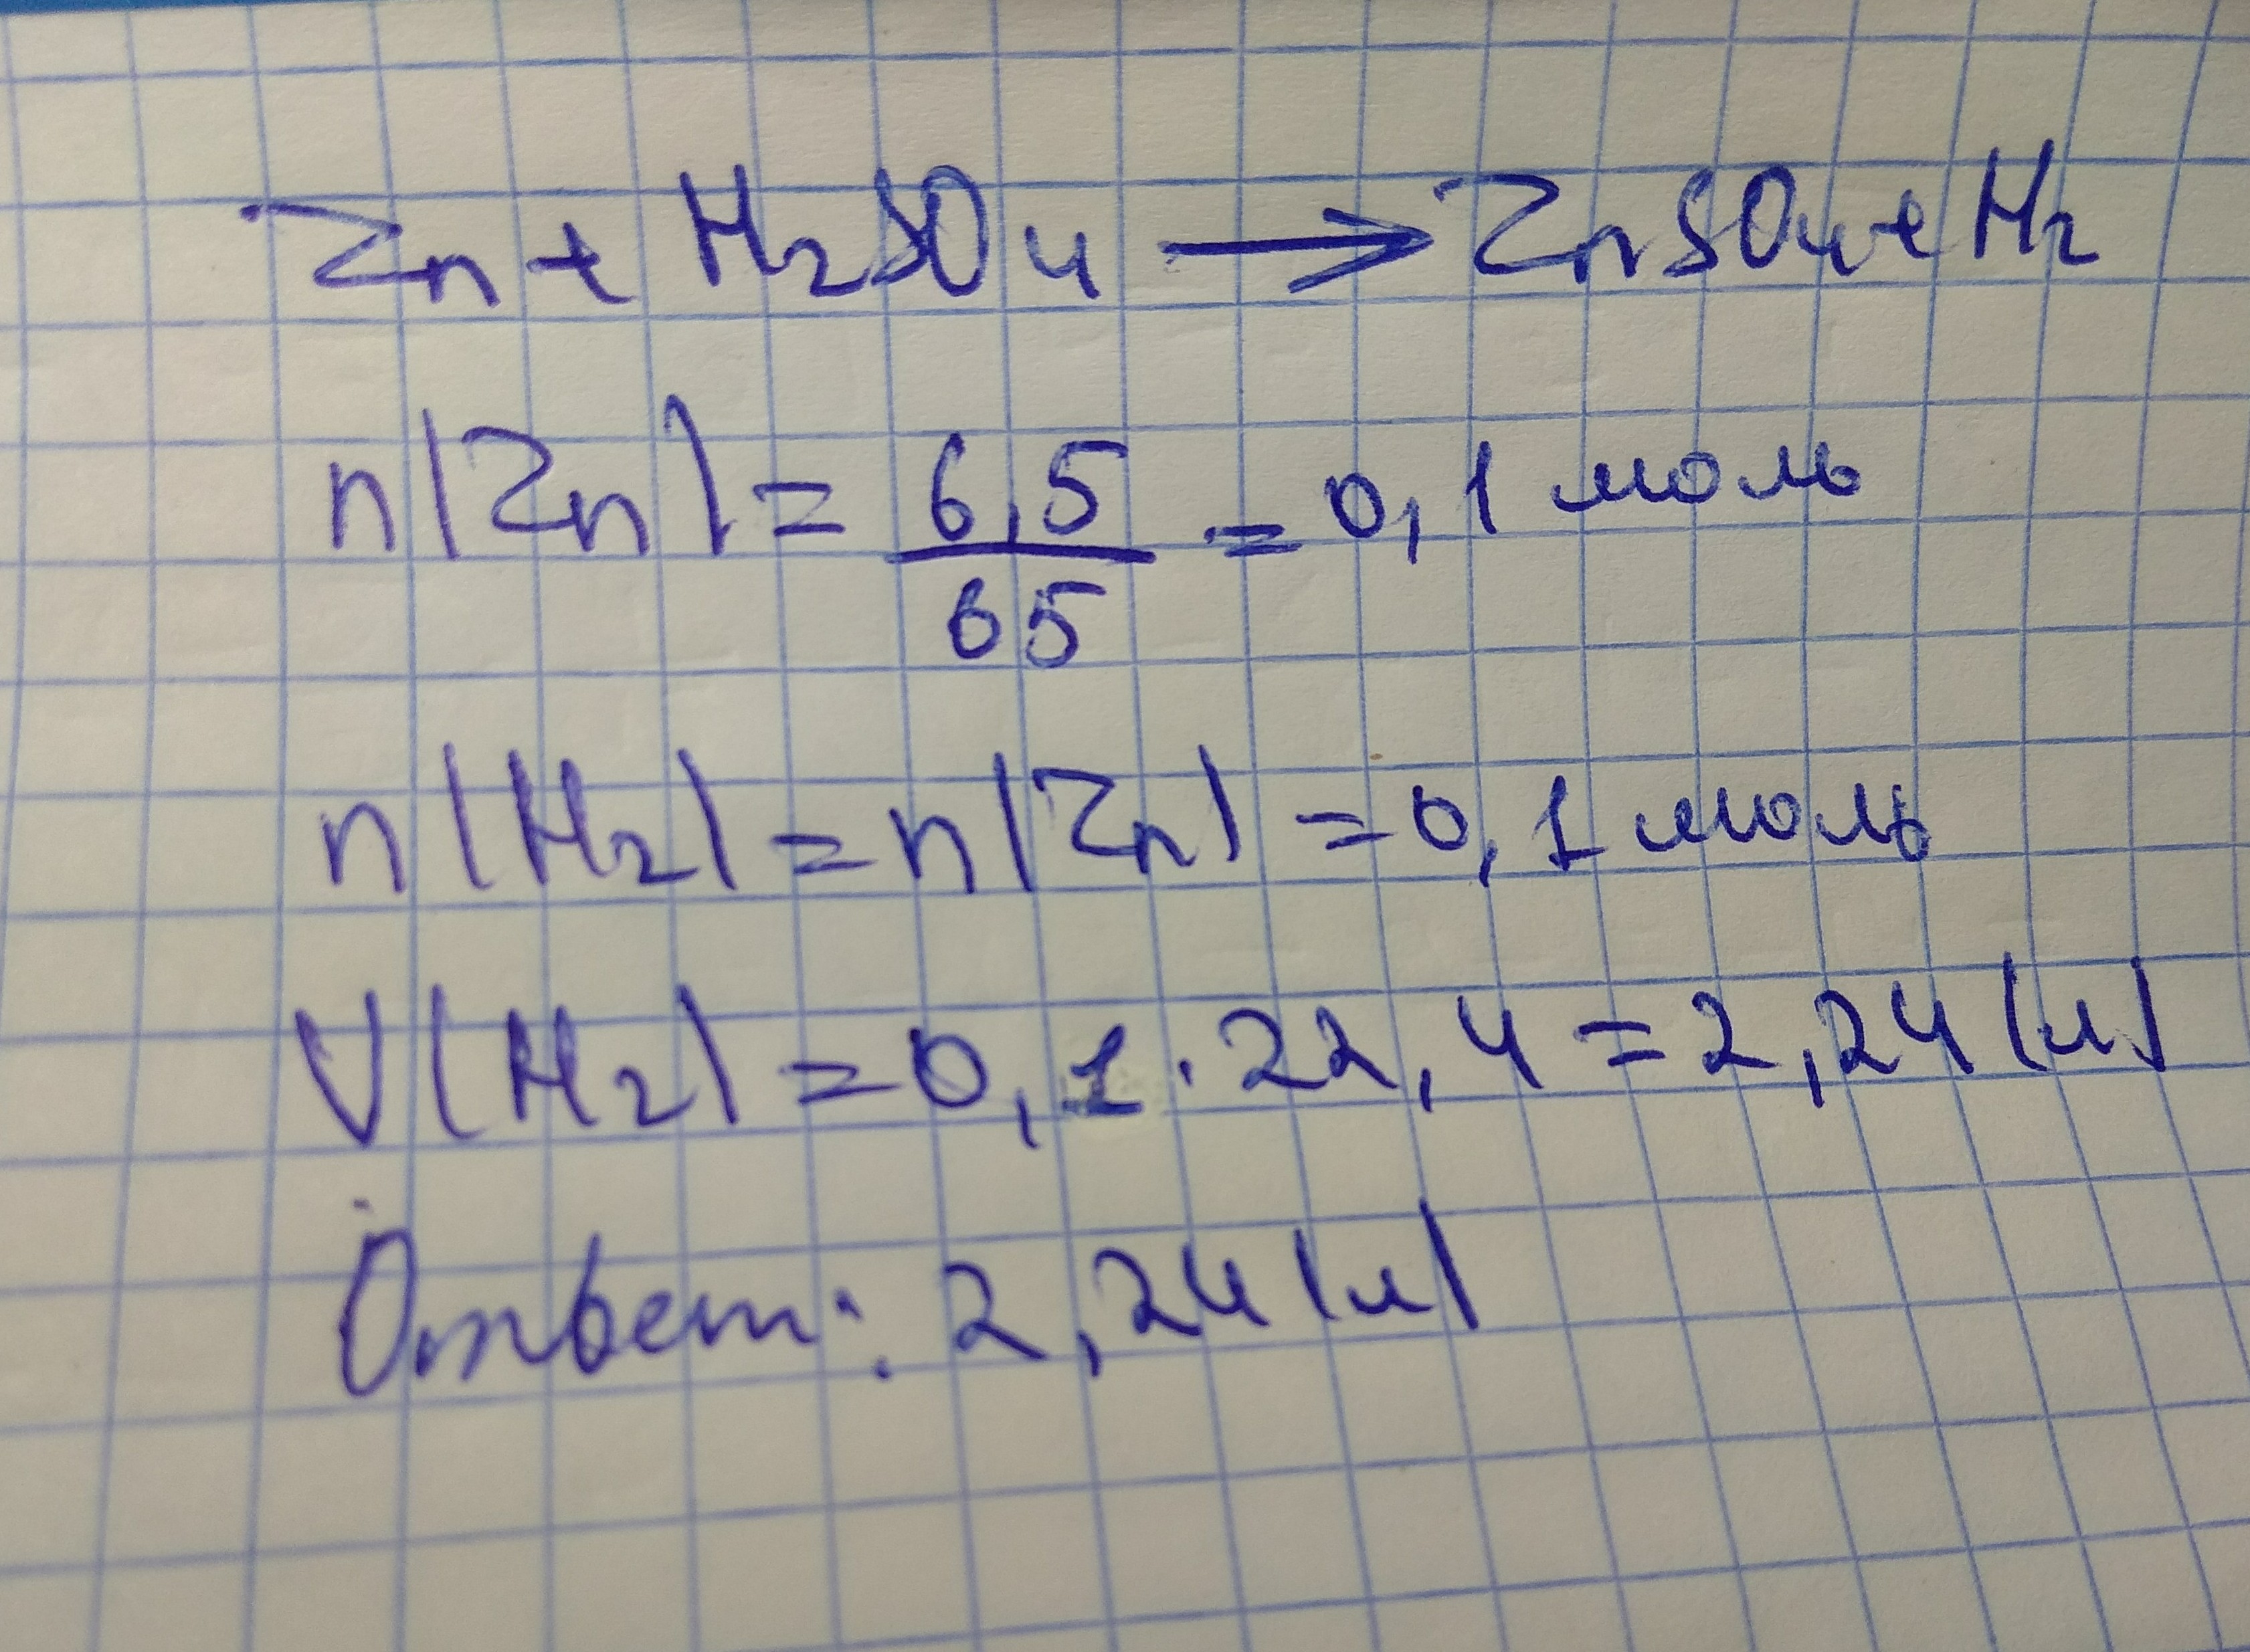 Zn + H₂SO₄ → ZnSO₄ + H₂
n(Zn) = 6,5/65 = 0,1 моль
n(H₂) = n(Zn) = 0,1 моль
V(H₂) = 0,1 · 22,4 = 2,24 (л)
Ответ: 2,24 (л)